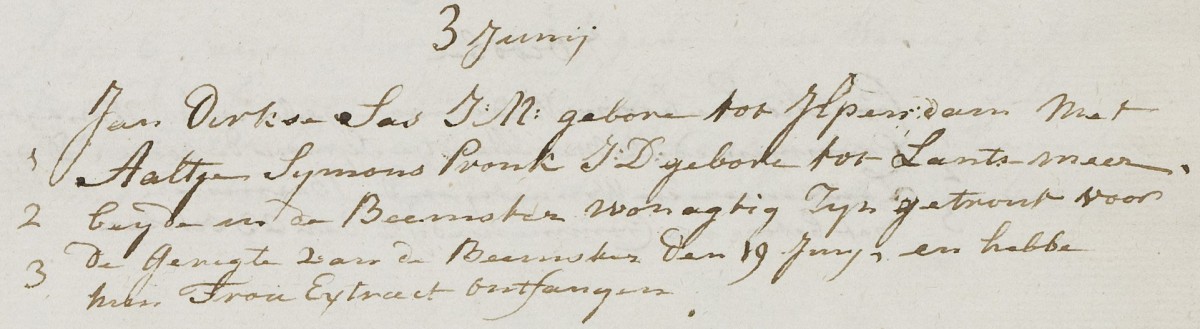 3 Junij
Jan Dirkse Sas J: M: gebore tot Ilpendam Met
1 Aaltje Symons Pronk J: D: gebore tot Lants-meer,
2 beyde in de Beemster wonagtig Zyn getrout voor
3 de Geregte van de Beemster den 19 Juny, en hebbe
hun Trou Extract ontfangen.